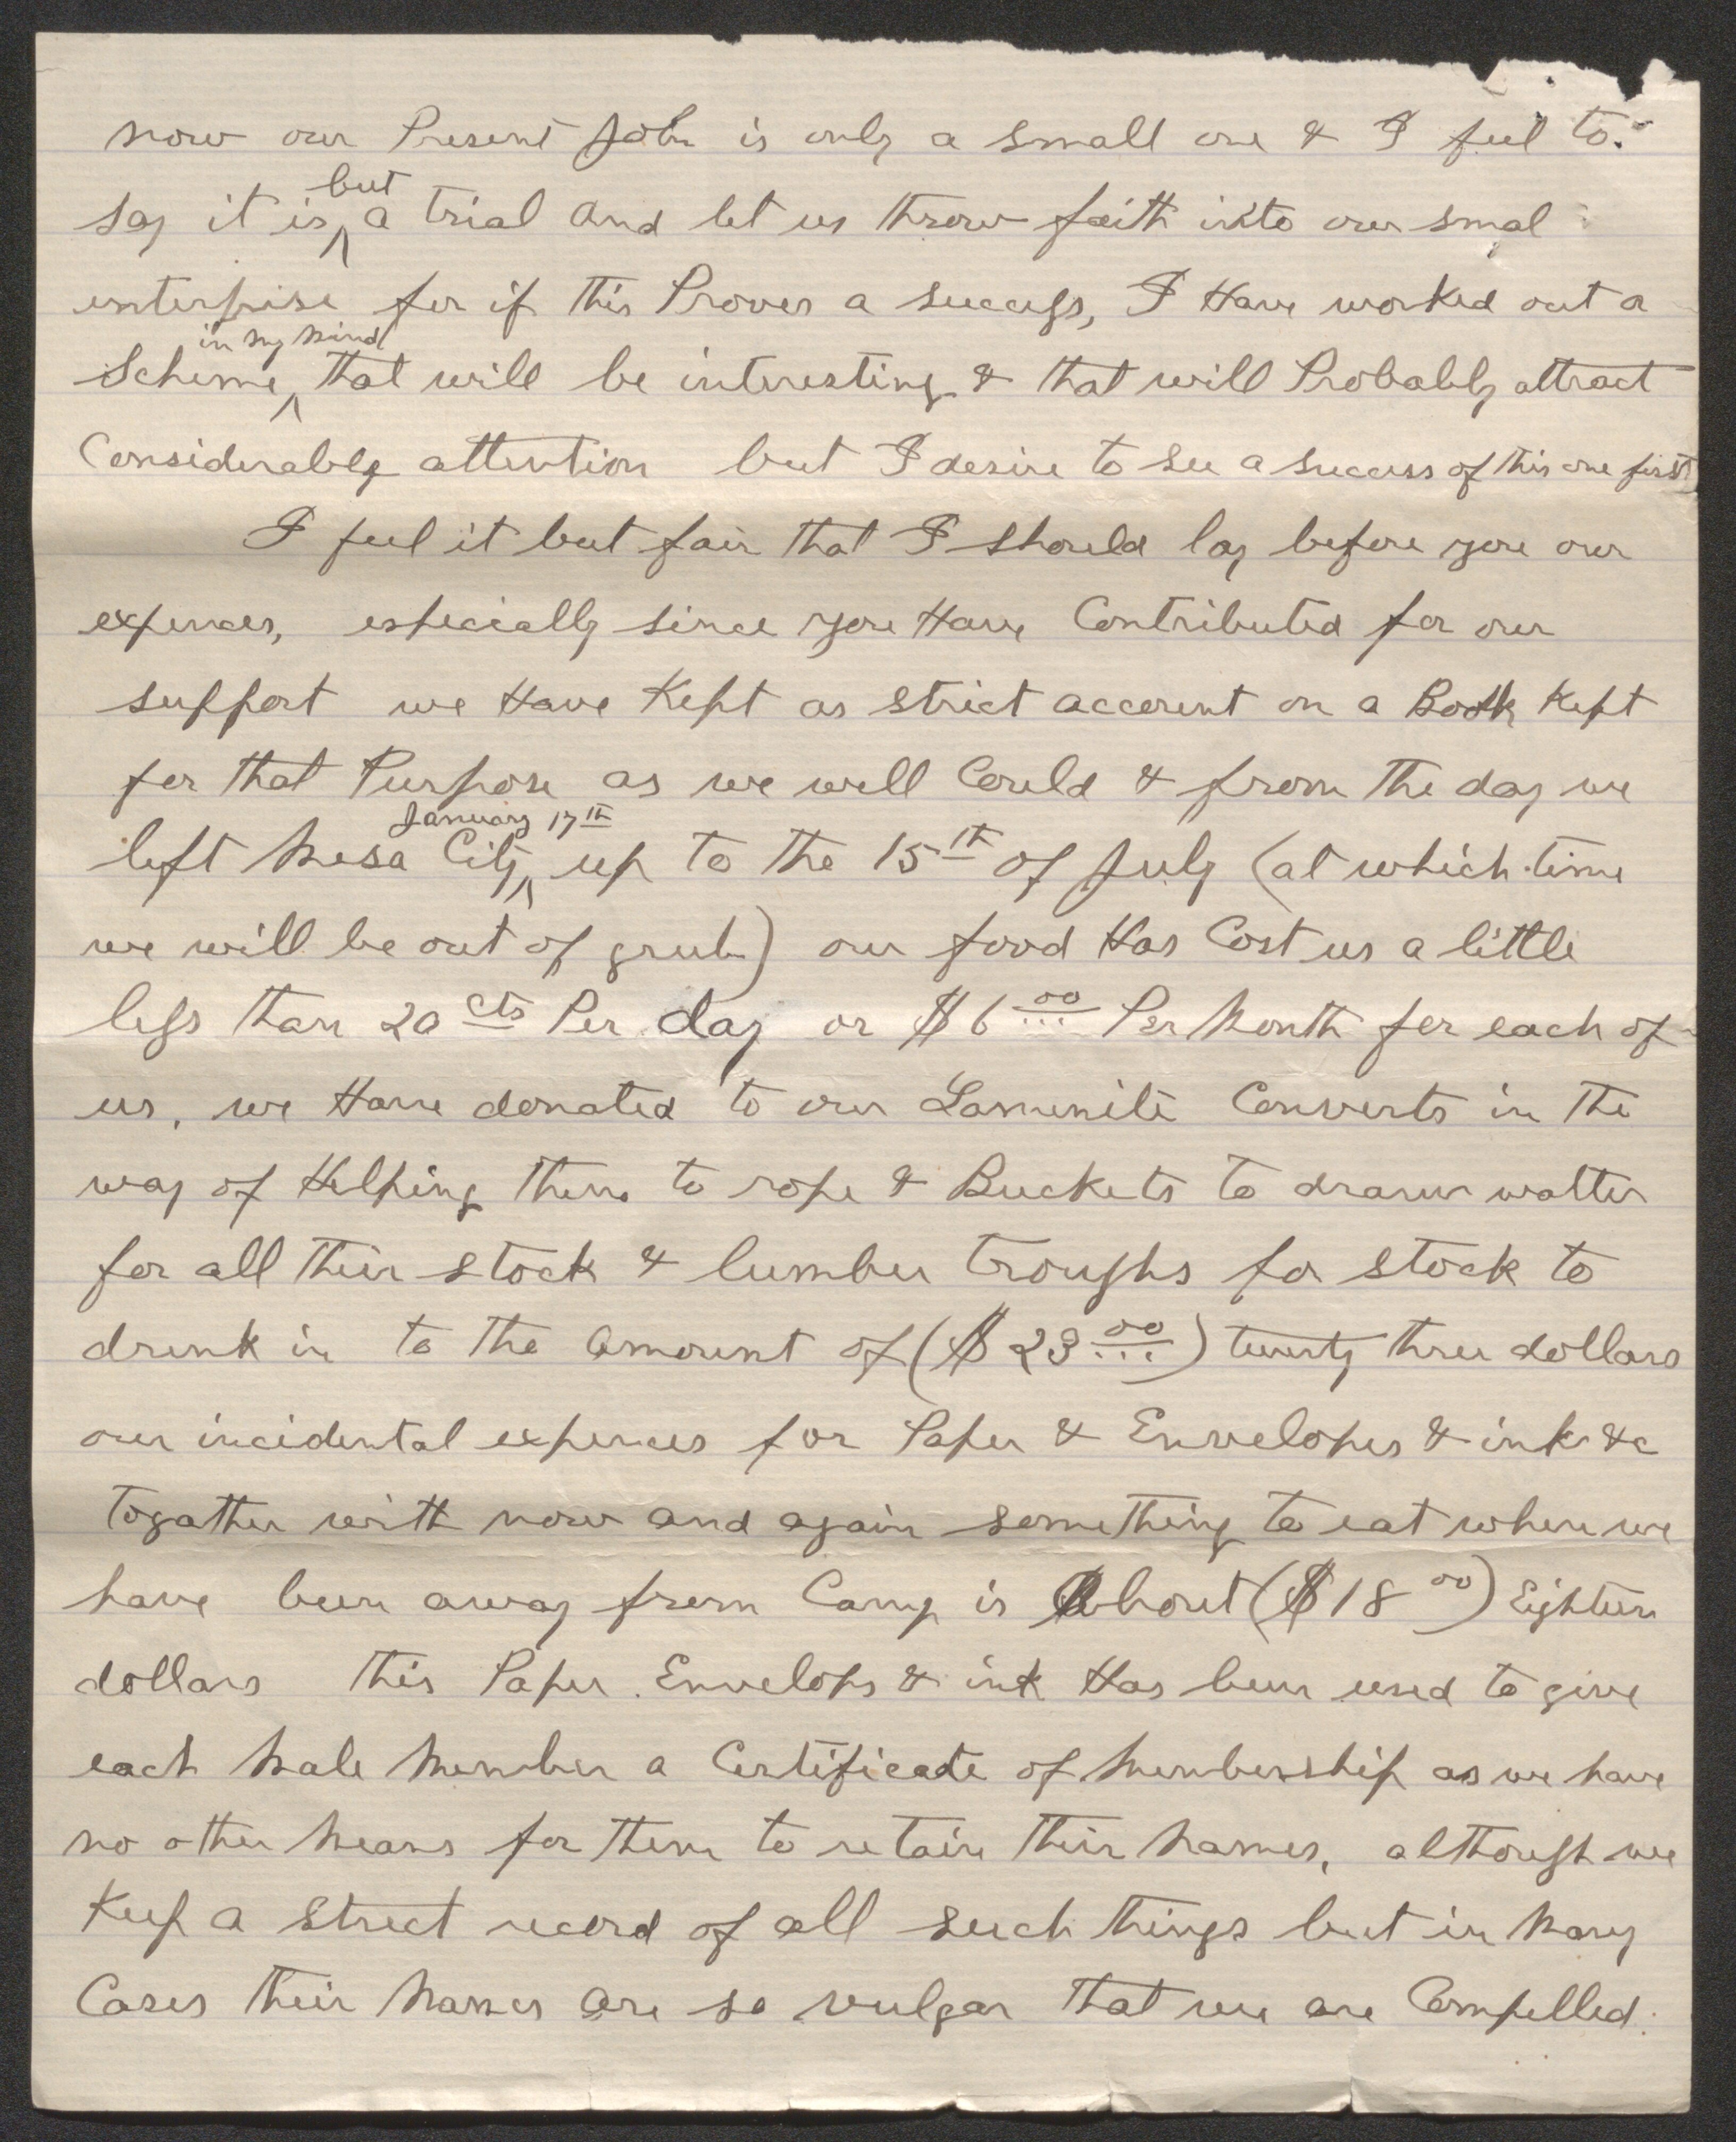 now our Present Job is only a small one & I feel to
say it is ^but a trial and let us throw faith into our smal
enterprise for if this Proves a success, I Have worked out a
Scheme ^in my mind that will be interesting & that will Probably attract
Considerably attention but I desire to see a success of this one first
I feel it but fair that I should lay before you our
expences, especially since you Have Contributed for our
support we Have Kept as strict account on a Book Kept
for that Purpose as we well Could & from the day we
left Mesa City ^January 17th up to the 15th of July (at which time
we will be out of grub) our food Has Cost us a little
less than 20 cts Per day or $6.00 Per Month for each of
us, we Have donated to our Lamenite Converts in the
way of Helping them to rope & Buckets to draw watter
for all their stock & lumber troughs for stock to
drink in to the amount of ($23.00) twenty three dollars
our incidental expences for Paper & Envelopes & ink &c
togather with now and again something to eat where we
have been away from Camp is About ($18 00) Eighteen
dollars this Paper. Envelops & ink Has been used to give
each Male Member a Certificate of Membership as we have
no other Means for them to retain their Names, although we
Keep a strect record of all such things but in Many
Cases their Names are so vulgar that we are Compelled.